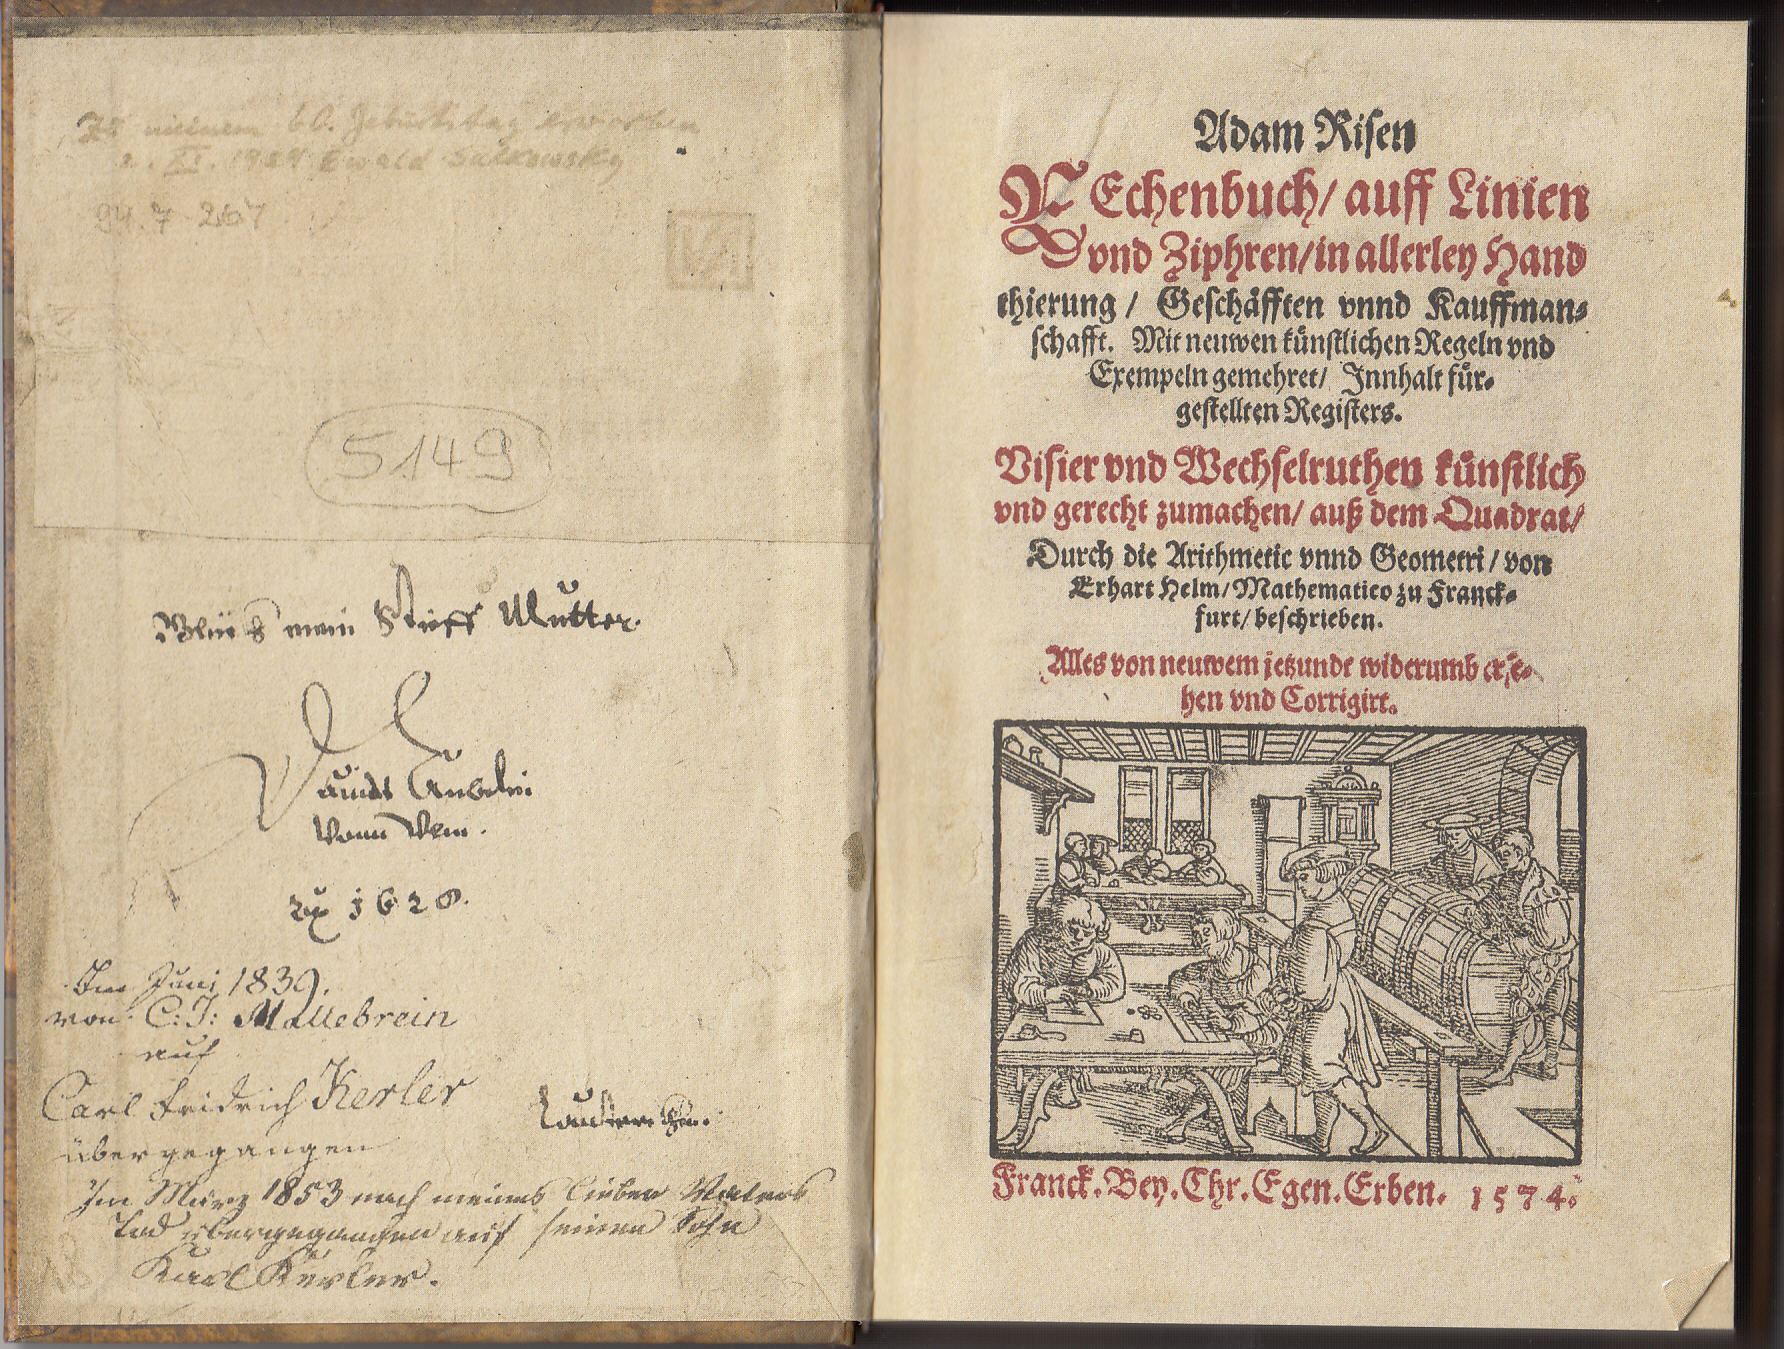 Zu meinem 60. Geburtstag erworben
Ewald Salkowsky
94.7 267
5149
mein Stieff Mutter.
Dauidt
vonn Vlm.
1628.
Im Juni 1839.
von C: J: Mallebrein
auf
Carl Fridrich Kerler
übergegangen
Im März 1853 nach meines lieben Vaters
Tod übergegangen auf seinen Sohn
Karl Kerler.
Adam Risen
REchenbuch/ auff Linien
vnd Ziphren/in allerley Hand
thierung / Geschäfften vnnd Kauffman⸗
schafft. Mit neuwen künstlichen Regeln vnd
Exempeln gemehret/ Innhalt für⸗
gestellten Registers.
Visier vnd Wechselruthen künstlich
vnd gerecht zumachen/ auß dem Quadrat/
Durch die Arithmetic vnnd Geometri / von
Erhart Helm/Mathematico zu Franck⸗
furt/ beschrieben.
Alles von neuwem jetzundt widerumb erse⸗
hen vnd Corrigirt.
Franck. Bey. Chr. Egen. Erben. 1574.